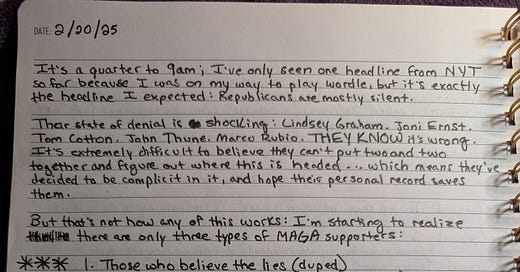 DATE: 2/20/25
It's a quarter to 9am; I've only seen one headline from NYT
so far because I was on my way to play wordle, but it's exactly
the headline I expected: Republicans are mostly silent.
Their state of denial is shocking: Lindsey Graham. Joni Ernst.
Tom Cotton. John Thune. Marco Rubio. THEY KNOW it's wrong.
It's extremely difficult to believe they can't put two and two
together and figure out where this is headed... which means they've
decided to be complicit in it, and hope their personal record saves
them.
But that's not how any of this works: I'm starting to realize
there are only three types of MAGA supporters:
*** 1. Those who believe the lies (duped)